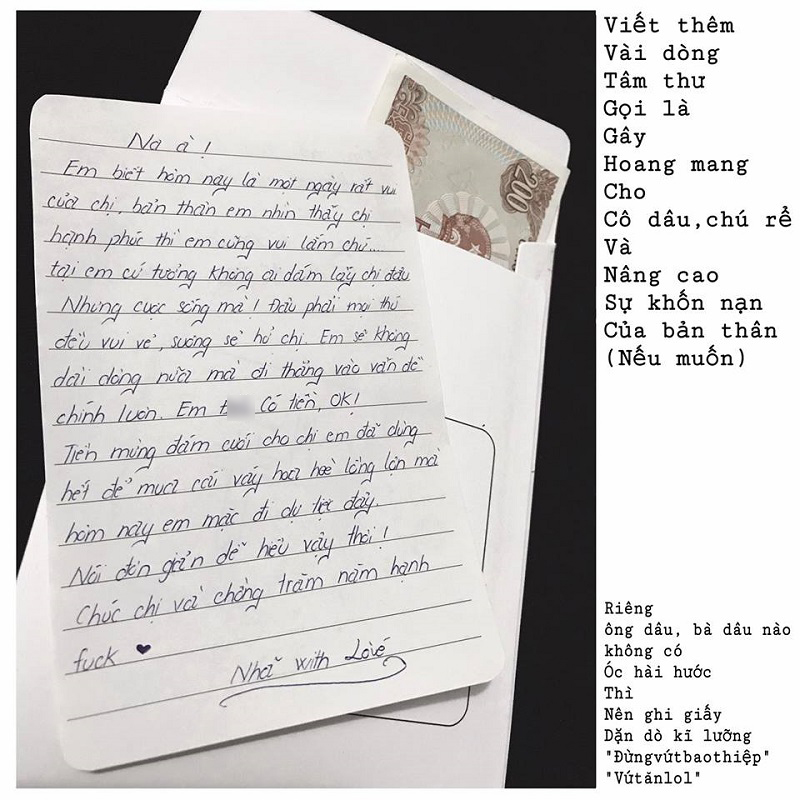 Na à!
Em biết hôm nay là một ngày rất vui
của chị, bản thân em nhìn thấy chị
hạnh phúc thì em cũng vui lắm chứ...
tại em cứ tưởng không ai dám lấy chị đâu
Nhưng cuộc sống mà! Đâu phải mọi thứ
đều vui vẻ, sướng sẻ hở chị. Em sẽ không
dài dòng nữa mà đi thẳng vào vấn đề
chính luôn. Em t có tiền, OK!
Tiền mừng đám cưới cho chị em đã dùng
hết để mua cái váy hoa hoè lồng lộn mà
hôm nay em mặc đi dự tiệc đây.
Nói đơn giản dễ hiểu vậy thôi!
Chúc chị và chồng trăm năm hạnh
fuck ♥
Nhã with Love
200
Viết thêm
Vài dòng
Tâm thư
Gọi là
Gây
Hoang mang
Cho
Cô dâu,chú rể
Và
Nâng cao
Sự khốn nạn
Của bản thân
(Nếu muốn)
Riêng
ông dâu, bà dâu nào
không có
Óc hài hước
Thì
Nên ghi giấy
Dặn dò kĩ lưỡng
"Đừngvứtbaothiệp"
"Vứtănlol"